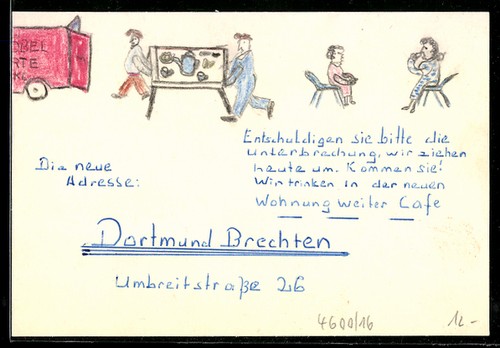 ÖBEL
Entschuldigen sie bitte die
unterbrechung, wir ziehen
heute um. Kommen sie!
Wir trinken in der neuen
Wohnung weiter Cafe
Die neue
Adresse:
Dortmund Brechten
Umbreitstraße 26
4600/16
12-